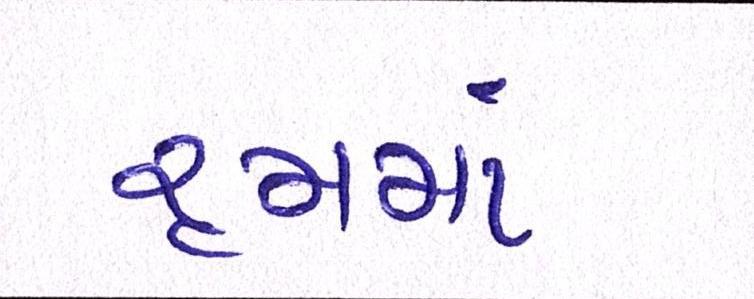 રૂમમાં